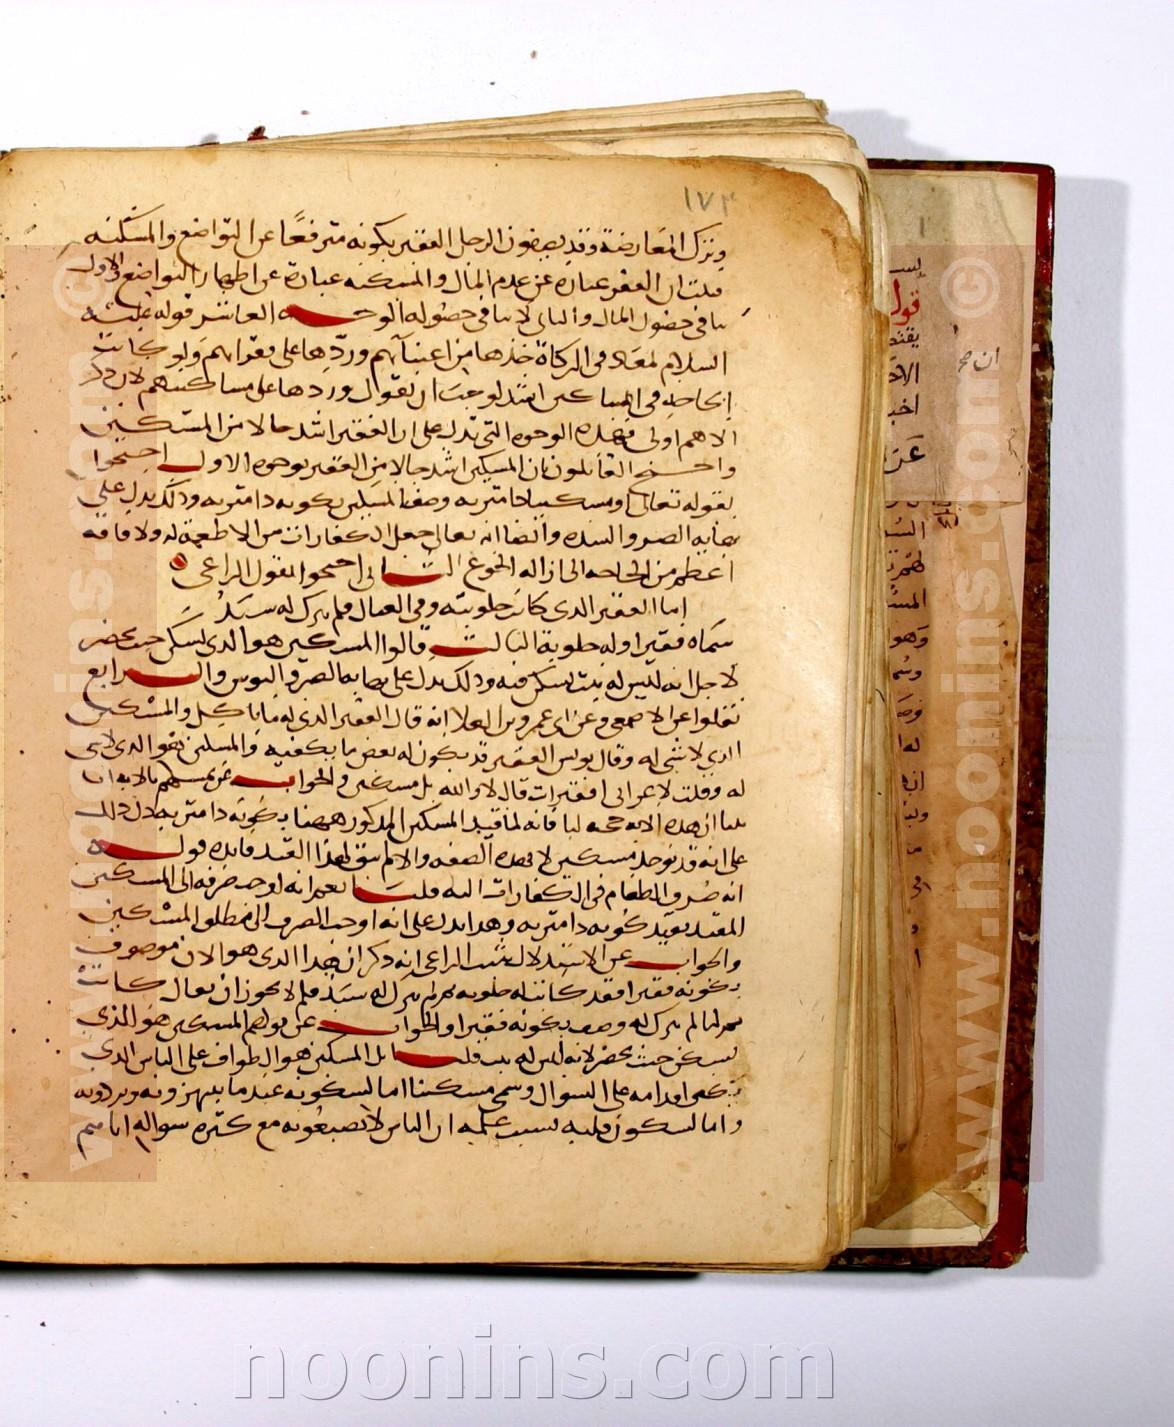 ١٧٣
وترك المعارضة وقد يصفون الرجل الفقير بكونه مترفعًا عن التواضع والمسكنه
قلت ان الفقر عبارة عن عدم المال والمسكنه عبارة عن اظهار التواضع والاول
ينافى حصول المال والثانى لا ينافى حصوله الوجه العاشر قوله عليه
السلام لمعاذ فى الزكاة خذها من اغنيآئهم وردها على فقرائهم ولو كانت
الحاجه فى المساكين اشد لوجب ان يقول وردها على مساكينهم لان ذكر
الاهم اولى فهذه الوجوه التى تدل على ان الفقير اشد حالا من المسكين
واحتج القآئلون بان المسكين اشد حالا من الفقير بوجوه الاول احتجوا
بقوله تعالى او مسكينا ذا متربه وصف المسكين بكونه ذا متربه وذلك يدل على
نهايه الضر والشده وايضا انه تعالى جعل الكفارات من الاطعمة له ولا فاقه
اعظم من الحاجه الى ازاله الجوع الثانى احتجوا بقول الراعى
اما الفقير الذى كانت حلوبته وفق العيال فلم يترك له سبد
سماه فقيرا وله حلوبة الثالث قالوا المسكين هو الذى يسكن حيث يحضر
لاجل انه ليس له بيت يسكن فيه وذلك يدل على نهايه الضر والبوس والرابع
نقلوا عن الاصمعى وعن ابى عمرو بن العلا انه قال الفقير الذى له ما ياكل والمسكين
الذى لا شى له وقال يونس الفقير قد يكون له بعض ما يكفيه والمسكين هو الذى لا شى
له وقلت لاعرابى افقير انت قال لا والله بل مسكين والجواب عن تمسكهم بالايه انا
بينا ان هذه الايه حجه لنا فانه لما قيد المسكين المذكور ههنا بكونه ذا متربه دل ذلك
على انه قد يوجد مسكين لا بهذه الصفه والا لم يبق لهذا القيد فايده قوله
انه صرف الطعام فى الكفارات اليه قلنا نعم انه اوجب صرفه الى المسكين
المقيد بقيد كونه ذا متربه وهذا يدل على انه اوجب الصرف الى مطلق المسكين
والجواب عن الاستدلال ببيت الراعى انه ذكر ان هذا الذى هو الان موصوف
بكونه فقيرا فقد كانت له حلوبه ثم لم يترك له سبد فلم لا يجوز ان يقال كانت
ثم لما لم يترك له وصف بكونه فقيرا والجواب عن قولهم المسكين هو الذى
يسكن حيث يحضر لانه ليس له بيت قلنا بل المسكين هو الطواف على الناس الذى
اقدامه على السوال وسمى مسكينا اما لسكونه عندما ينهرونه ويردونه
واما لسكون قلبه بسبب علمه ان الناس لا يضيعونه مع كثره سواله اياهم
ان صح
قوله
الاخ
وهو
www.noonins.com ©
www.noonins.com ©
noonins.com